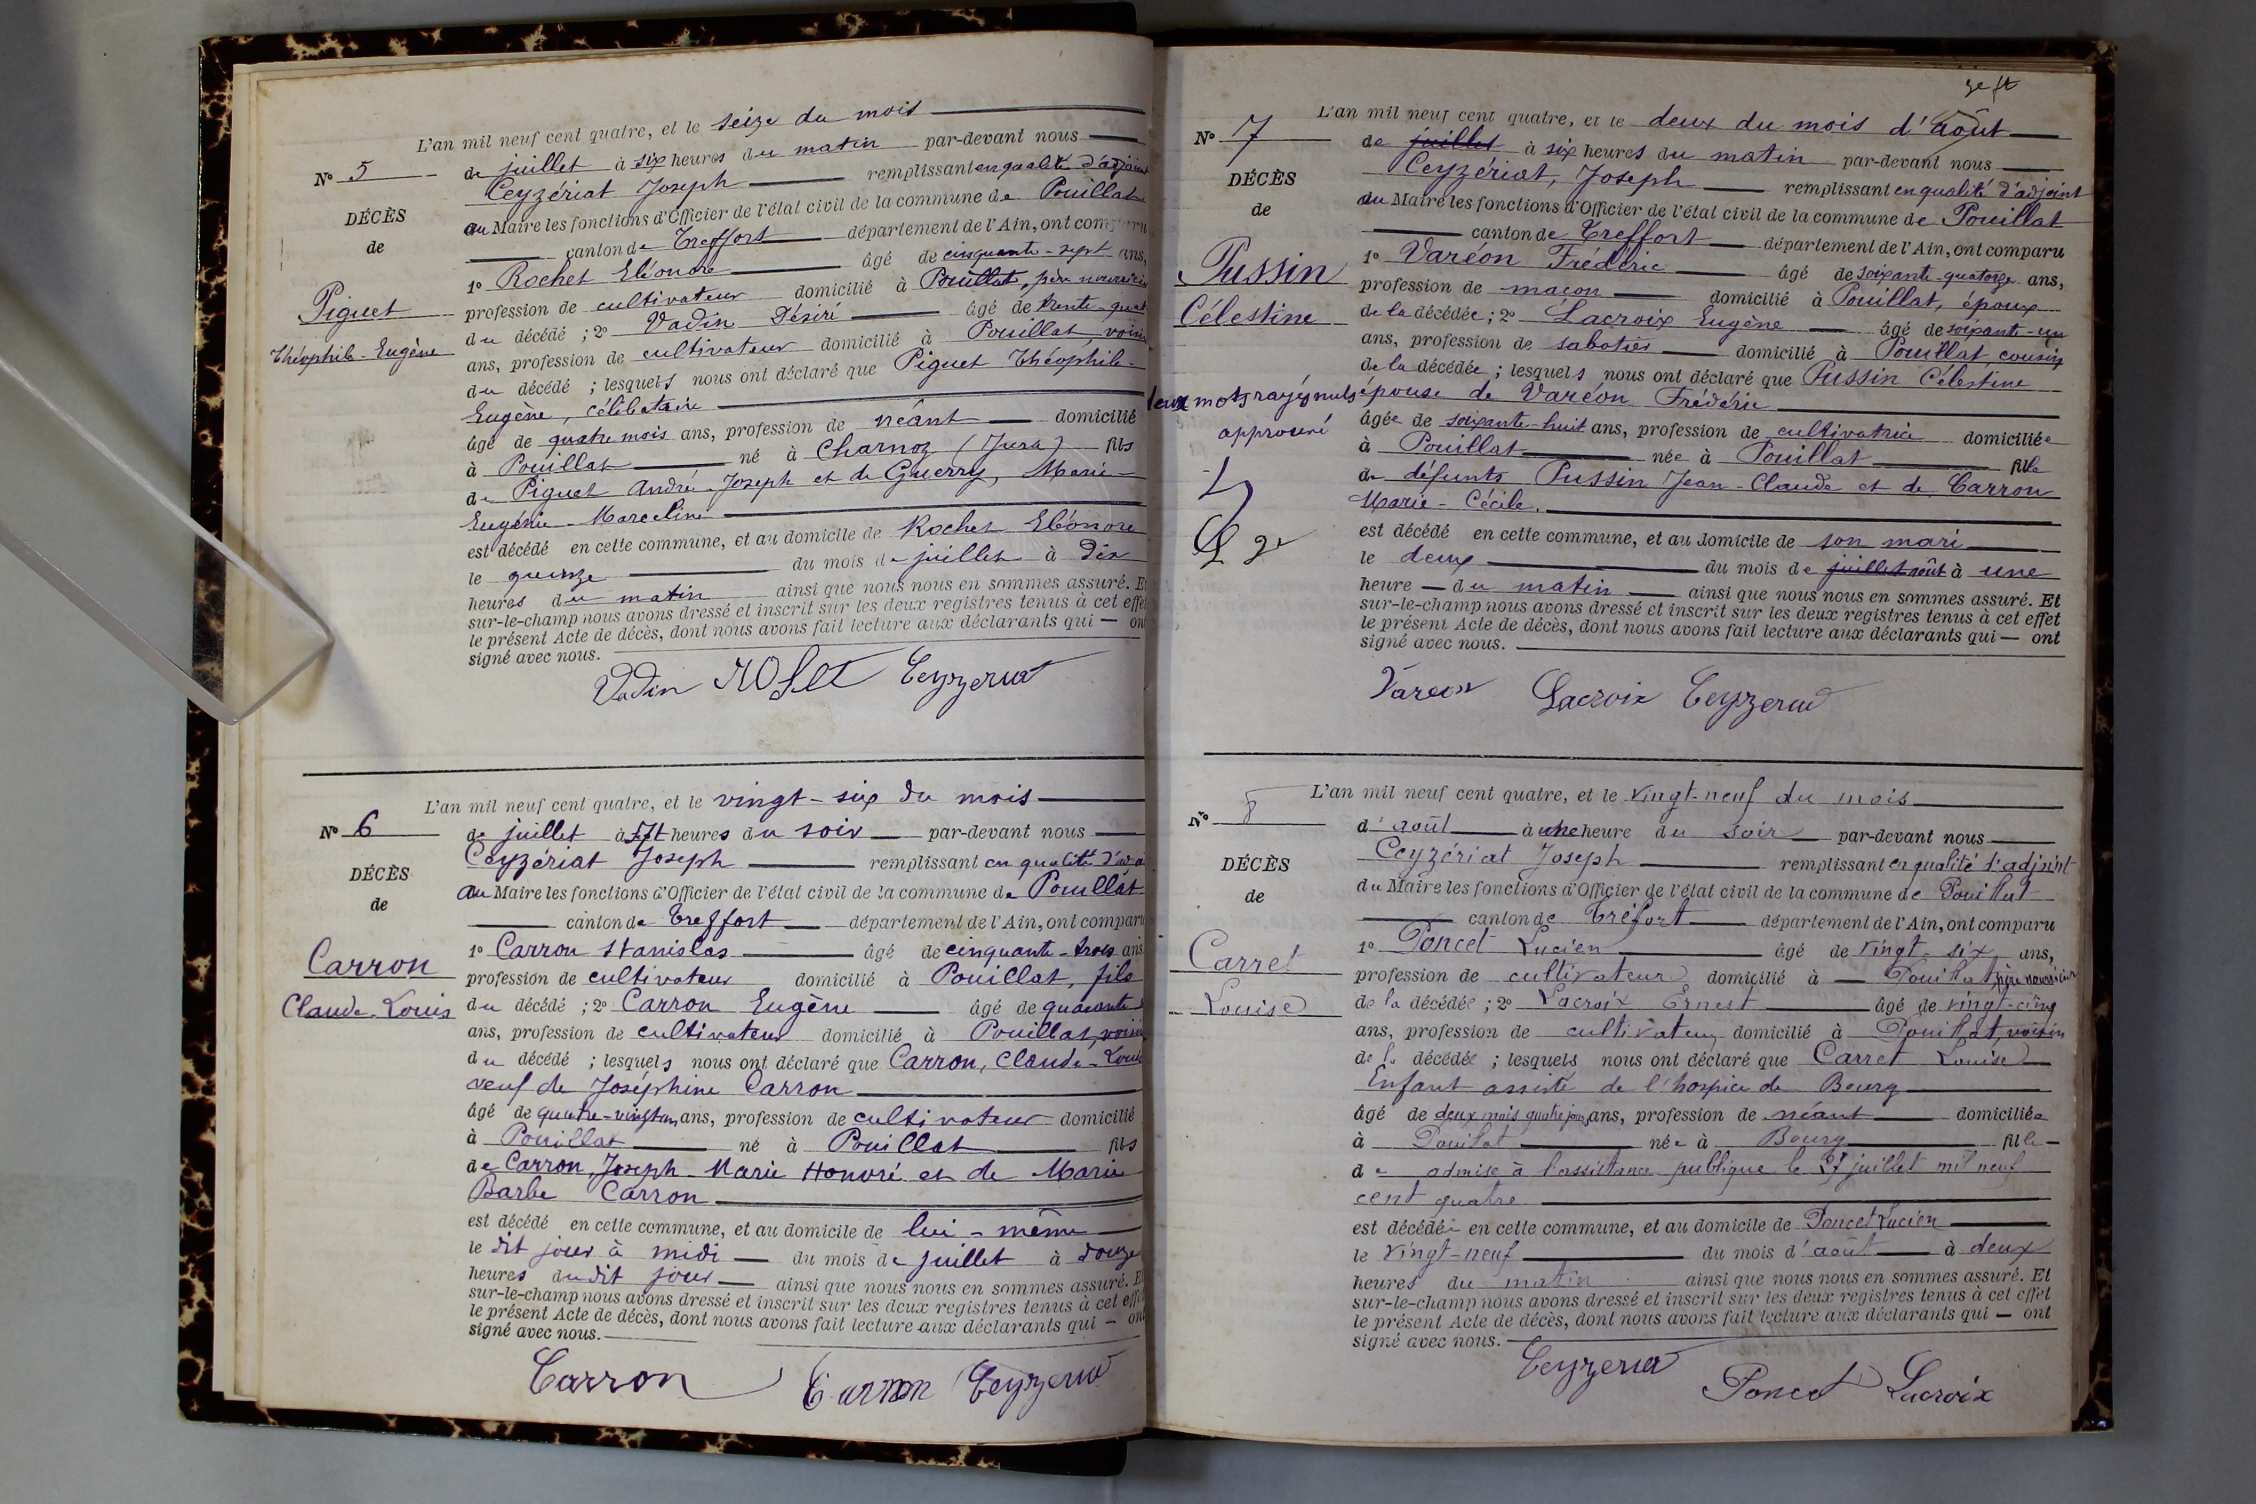 L'an mil neuf cent quatre, et le seize du mois
N° 5
de juillet à six heures du matin par-devant nous
Ceyzériat Joseph remplissant en qualité d'adjoint
DÉCÈS
au Maire les fonctions d'Officier de l'état civil de la commune de Pouillat
de
canton de Treffort département de l'Ain, ont comparu
1° Rochet Eléonore âgé de cinquante-sept ans,
Piguet
profession de cultivateur domicilié à Pouillat, père nourricier
du décédé ; 2° Vadin Désiré âgé de trente-quatre
Théophile-Eugène
ans, profession de cultivateur domicilié à Pouillat, voisin
du décédé ; lesquels nous ont déclaré que Piguet Théophile-
Eugène, célibataire
âgé de quatre mois ans, profession de néant domicilié
à Pouillat né à Charnoz (Jura) fils
de Piguet André-Joseph et de Guerry, Marie-
Eugénie-Marceline
est décédé en cette commune, et au domicile de Rochet Eléonore
le quinze du mois de juillet à dix
heures du matin ainsi que nous nous en sommes assuré. Et
sur-le-champ nous avons dressé et inscrit sur les deux registres tenus à cet effet
le présent Acte de décès, dont nous avons fait lecture aux déclarants qui — ont
signé avec nous.
Vadin Ceyzeriat
L'an mil neuf cent quatre, et le vingt-six du mois
N° 6
de juillet à heures du soir par-devant nous
Ceyzériat Joseph remplissant en qualité d'ad
DÉCÈS
au Maire les fonctions d'Officier de l'état civil de la commune de Pouillat
de
canton de Treffort département de l'Ain, ont comparu
1° Carron Stanislas âgé de cinquante-trois ans
Carron
profession de cultivateur domicilié à Pouillat, fils
Claude-Louis
du décédé ; 2° Carron Eugène âgé de quarante
ans, profession de cultivateur domicilié à Pouillat, voisin
du décédé ; lesquels nous ont déclaré que Carron, Claude-Louis
veuf de Joséphine Carron
âgé de quatre-vingt ans, profession de cultivateur domicilié
à Pouillat né à Pouillat fils
de Carron, Joseph-Marie Honoré et de Marie
Barbe Carron
est décédé en cette commune, et au domicile de lui-même
le dit jour à midi du mois de juillet à douze
heures du dit jour ainsi que nous nous en sommes assuré. Et
sur-le-champ nous avons dressé et inscrit sur les deux registres tenus à cet effet
le présent Acte de décès, dont nous avons fait lecture aux déclarants qui — ont
signé avec nous.
Carron Carron Ceyzeriat
L'an mil neuf cent quatre, et le deux du mois d'août
N° 7
de juillet à six heures du matin par-devant nous
Ceyzériat, Joseph remplissant en qualité d'adjoint
DÉCÈS
au Maire les fonctions d'Officier de l'état civil de la commune de Pouillat
de
canton de Treffort département de l'Ain, ont comparu
1° Varéon Frédéric âgé de soixante-quatorze ans,
Pussin
profession de maçon domicilié à Pouillat, époux
Célestine
de la décédée ; 2° Lacroix Eugène âgé de soixante-un
ans, profession de sabotier domicilié à Pouillat, cousin
de la décédée ; lesquels nous ont déclaré que Pussin Célestine
deux mots rayés nuls
épouse de Varéon Frédéric
approuvé
âgée de soixante-huit ans, profession de cultivatrice domiciliée
à Pouillat née à Pouillat fille
de défunts Pussin Jean-Claude et de Carron
Marie-Cécile.
est décédé en cette commune, et au domicile de son mari
le deux du mois de juillet août à une
heure du matin ainsi que nous nous en sommes assuré. Et
sur-le-champ nous avons dressé et inscrit sur les deux registres tenus à cet effet
le présent Acte de décès, dont nous avons fait lecture aux déclarants qui — ont
signé avec nous.
Vareon Lacroix Ceyzeriat
L'an mil neuf cent quatre, et le vingt-neuf du mois
N° 8
d'août à une heure du soir par-devant nous
Ceyzériat Joseph remplissant en qualité d'adjoint
DÉCÈS
du Maire les fonctions d'Officier de l'état civil de la commune de Pouillat
de
canton de Tréfort département de l'Ain, ont comparu
1° Poncet Lucien âgé de vingt-six ans,
Carret
profession de cultivateur domicilié à Pouillat, père nourricier
Louise
de la décédée ; 2° Lacroix Ernest âgé de vingt-cinq
ans, profession de cultivateur domicilié à Pouillat, voisin
de la décédée ; lesquels nous ont déclaré que Carret Louise
Enfant assisté de l'hospice de Bourg
âgé de deux mois quatre jours ans, profession de néant domiciliée
à Pouilat née à Bourg fille
de admise à l'assistance publique le 27 juillet mil neuf
cent quatre
est décédée en cette commune, et au domicile de Poncet Lucien
le vingt-neuf du mois d'août à deux
heures du matin ainsi que nous nous en sommes assuré. Et
sur-le-champ nous avons dressé et inscrit sur les deux registres tenus à cet effet
le présent Acte de décès, dont nous avons fait lecture aux déclarants qui — ont
signé avec nous.
Ceyzeriat
Poncet Lacroix